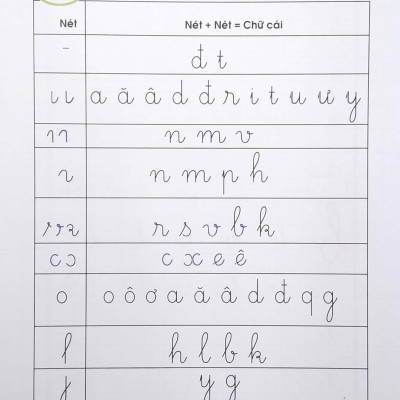 Nét Nét + Nét = Chữ cái
đ t
a ă â d đ r i t u ư y
n m v
n m p h
r s v b k
c ɔ c x e ê
o o ô ơ a ă â d đ q g
l h l b k
y g